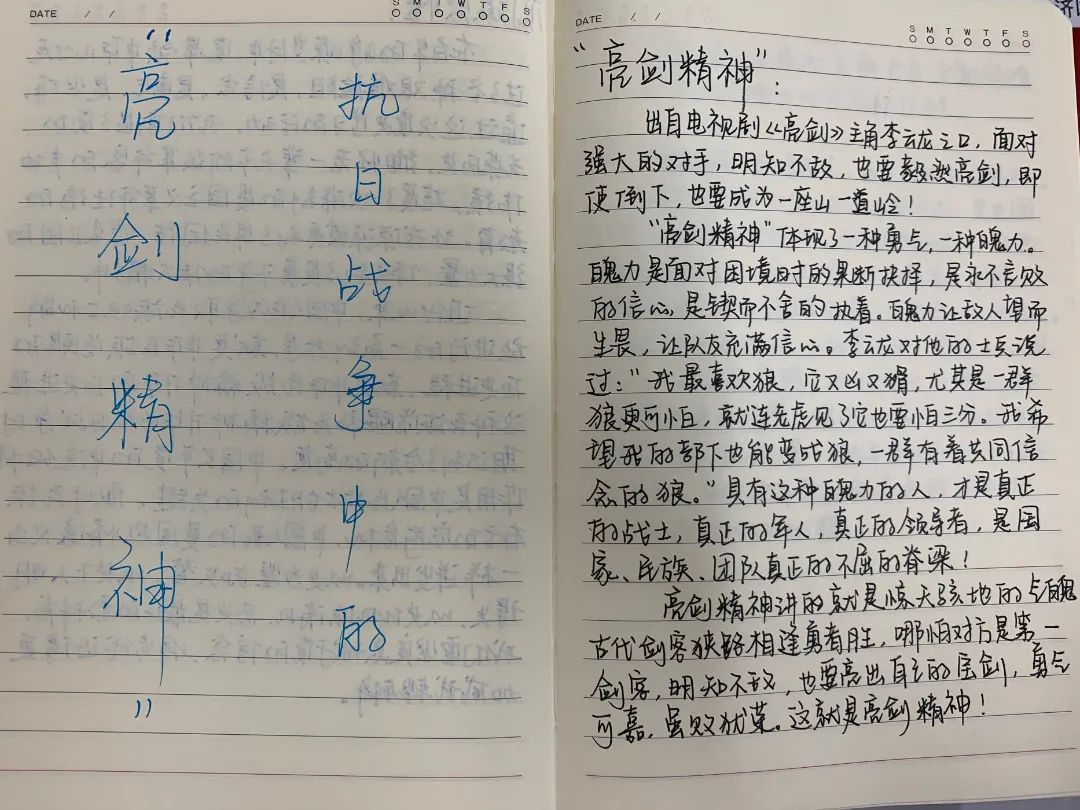 DATE / /
S M T W T F S
抗日战争中的
“亮剑精神”
DATE / /
S M T W T F S
“亮剑精神”：
出自电视剧《亮剑》主角李云龙之口，面对
强大的对手，明知不敌，也要毅然亮剑，即
使倒下，也要成为一座山一道岭！
“亮剑精神”体现了一种勇气，一种魄力。
魄力是面对困境时的果断抉择，是永不言败
的信心，是锲而不舍的执着。魄力让敌人望而
生畏，让队友充满信心。李云龙对他的士兵说
过：“我最喜欢狼，它又凶又猾，尤其是一群
狼更可怕，就连老虎见了它也要怕三分。我希
望我的部下也能变成狼，一群有着共同信
念的狼。”具有这种魄力的人，才是真正
的战士，真正的军人，真正的领导者，是国
家、民族、团队真正的不屈的脊梁！
亮剑精神讲的就是惊天骇地的气魄
古代剑客狭路相逢勇者胜，哪怕对方是第一
剑客，明知不敌，也要亮出自己的宝剑，勇气
可嘉，虽败犹荣。这就是亮剑精神！